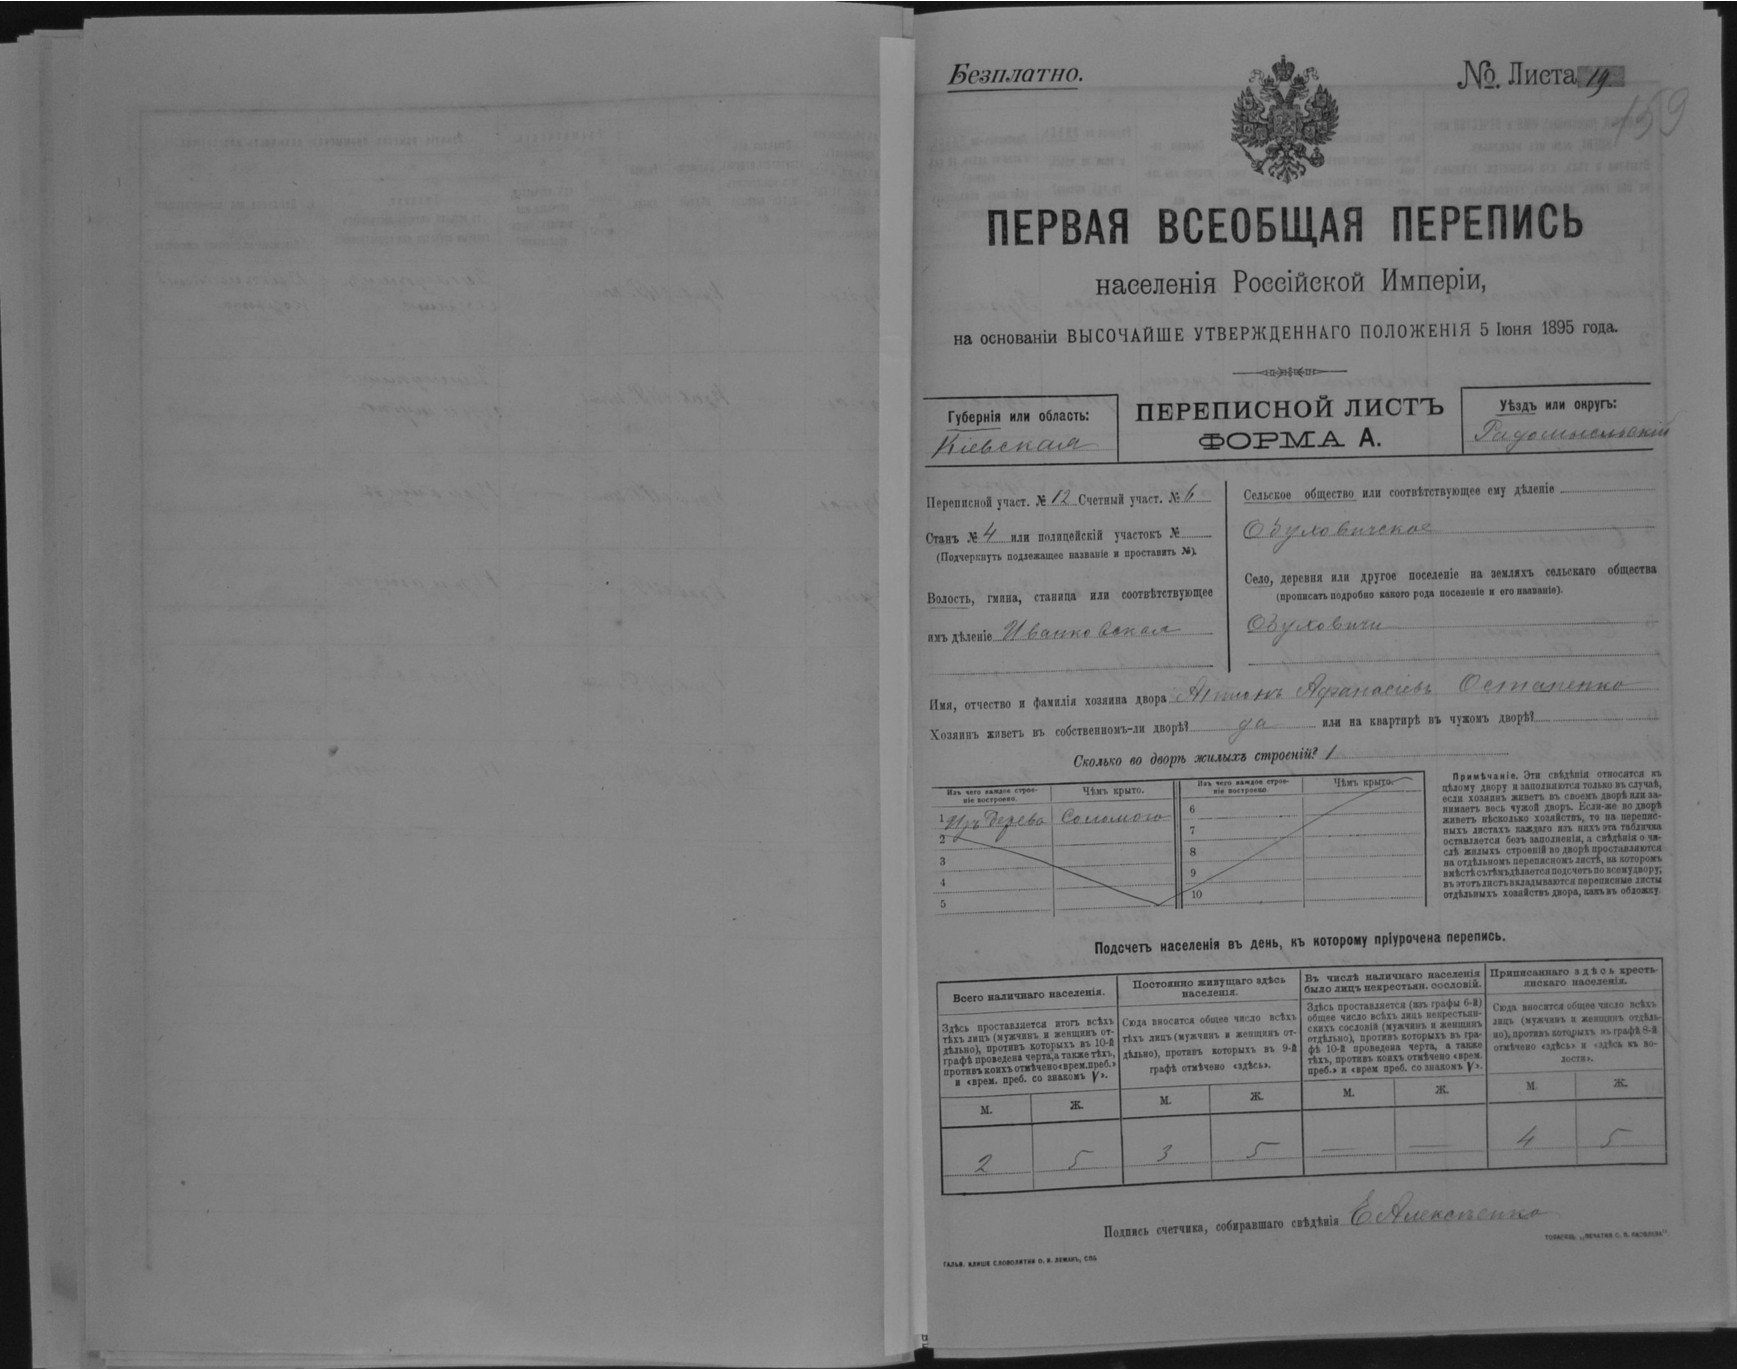 Безплатно.
№. Листа 19
159
ПЕРВАЯ ВСЕОБЩАЯ ПЕРЕПИСЬ
населенія Россійской Имперіи,
на основаніи ВЫСОЧАЙШЕ УТВЕРЖДЕННАГО ПОЛОЖЕНІЯ 5 Іюня 1895 года.
Губернія или область:
Кіевская
ПЕРЕПИСНОЙ ЛИСТЪ
ФОРМА А.
Уѣздъ или округъ:
Радомысльскій
Переписной участ. № 12 Счетный участ. № 6
Станъ № 4 или полицейскій участокъ №
(Подчеркнуть подлежащее названіе и проставить №).
Волость, гмина, станица или соотвѣтствующее
имъ дѣленіе Иванковская
Сельское общество или соотвѣтствующее ему дѣленіе
Обуховичское
Село, деревня или другое поселеніе на земляхъ сельскаго общества
(прописать подробно какого рода поселеніе и его названіе).
Обуховичи
Имя, отчество и фамилія хозяина двора Афанасіевъ Остапенко
Хозяинъ живетъ въ собственномъ-ли дворѣ? да или на квартирѣ въ чужомъ дворѣ?
Сколько во дворѣ жилыхъ строеній? 1
Изъ чего каждое строе-
ніе построено.
Чѣмъ крыто.
Изъ чего каждое строе-
ніе построено.
Чѣмъ крыто.
1 Изъ дерева Соломою
2
3
4
5
6
7
8
9
10
Примѣчаніе. Эти свѣдѣнія относятся къ
цѣлому двору и заполняются только въ случаѣ,
если хозяинъ живетъ въ своемъ дворѣ или за-
нимаетъ весь чужой дворъ. Если-же во дворѣ
живетъ нѣсколько хозяйствъ, то на перепис-
ныхъ листахъ каждаго изъ нихъ эта табличка
оставляется безъ заполненія, а свѣдѣнія о чи-
слѣ жилыхъ строеній во дворѣ проставляются
на отдѣльномъ переписномъ листѣ, на которомъ
вмѣстѣ съ тѣмъ дѣлается подсчетъ по всему двору;
въ этотъ листъ вкладываются переписные листы
отдѣльныхъ хозяйствъ двора, какъ въ обложку.
Подсчетъ населенія въ день, къ которому пріурочена перепись.
Всего наличнаго населенія.
Здѣсь проставляется итогъ всѣхъ
тѣхъ лицъ (мужчинъ и женщинъ от-
дѣльно), противъ которыхъ въ 10-й
графѣ проведена черта, а также тѣхъ,
противъ коихъ отмѣчено «врем. преб.»
и «врем. преб. со знакомъ V».
Постоянно живущаго здѣсь
населенія.
Сюда вносится общее число всѣхъ
тѣхъ лицъ (мужчинъ и женщинъ от-
дѣльно), противъ которыхъ въ 9-й
графѣ отмѣчено «здѣсь».
Въ числѣ наличнаго населенія
было лицъ некрестьян. сословій.
Здѣсь проставляется (изъ графы 6-й)
общее число всѣхъ лицъ некрестьян-
скихъ сословій (мужчинъ и женщинъ
отдѣльно), противъ которыхъ въ гра-
фѣ 10-й проведена черта, а также
тѣхъ, противъ коихъ отмѣчено «врем.
преб.» и «врем преб. со знакомъ V».
Приписаннаго здѣсь кресть-
янскаго населенія.
Сюда вносится общее число всѣхъ
лицъ (мужчинъ и женщинъ отдѣль-
но), противъ которыхъ въ графѣ 8-й
отмѣчено «здѣсь» и «здѣсь къ во-
лости».
М. Ж. М. Ж. М. Ж. М. Ж.
2 5 3 5 — — 4 5
Подпись счетчика, собиравшаго свѣдѣнія Е Алексѣенко
ГАЛЬВ. КЛИШЕ СЛОВОЛИТНИ О. И. ЛЕМАНЪ, СПБ.
ТОВАРИЩ. „ПЕЧАТНЯ С. П. ЯКОВЛЕВА".